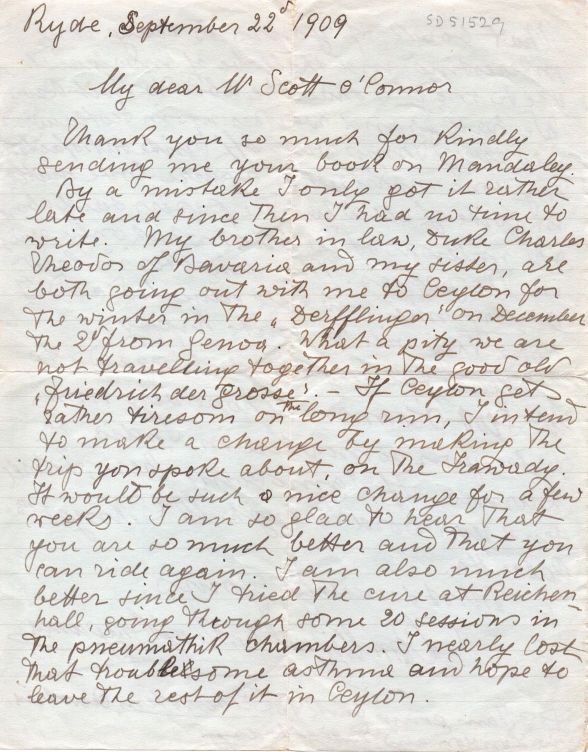 Ryde, September 22d 1909
SD51529
My dear Mr Scott O'Connor
Thank you so much for kindly
sending me your book on Mandalay.
By a mistake I only got it rather
late and since then I had no time to
write. My brother in law, Duke Charles
Theodor of Bavaria and my sister, are
both going out with me to Ceylon for
the winter in the „Derfflinger" on December
the 2d from Genoa. What a pity we are
not travelling together in the good old
„Friedrich der grosse". – If Ceylon gets
rather tiresom on the long run, I intend
to make a change by making the
trip you spoke about, on the Irawady.
It would be such a nice change for a few
weeks. I am so glad to hear that
you are so much better and that you
can ride again. I am also much
better since I tried the cure at Reichen-
hall, going through some 20 sessions in
the pneumathik chambers. I nearly lost
that troublesome asthma and hope to
leave the rest of it in Ceylon.